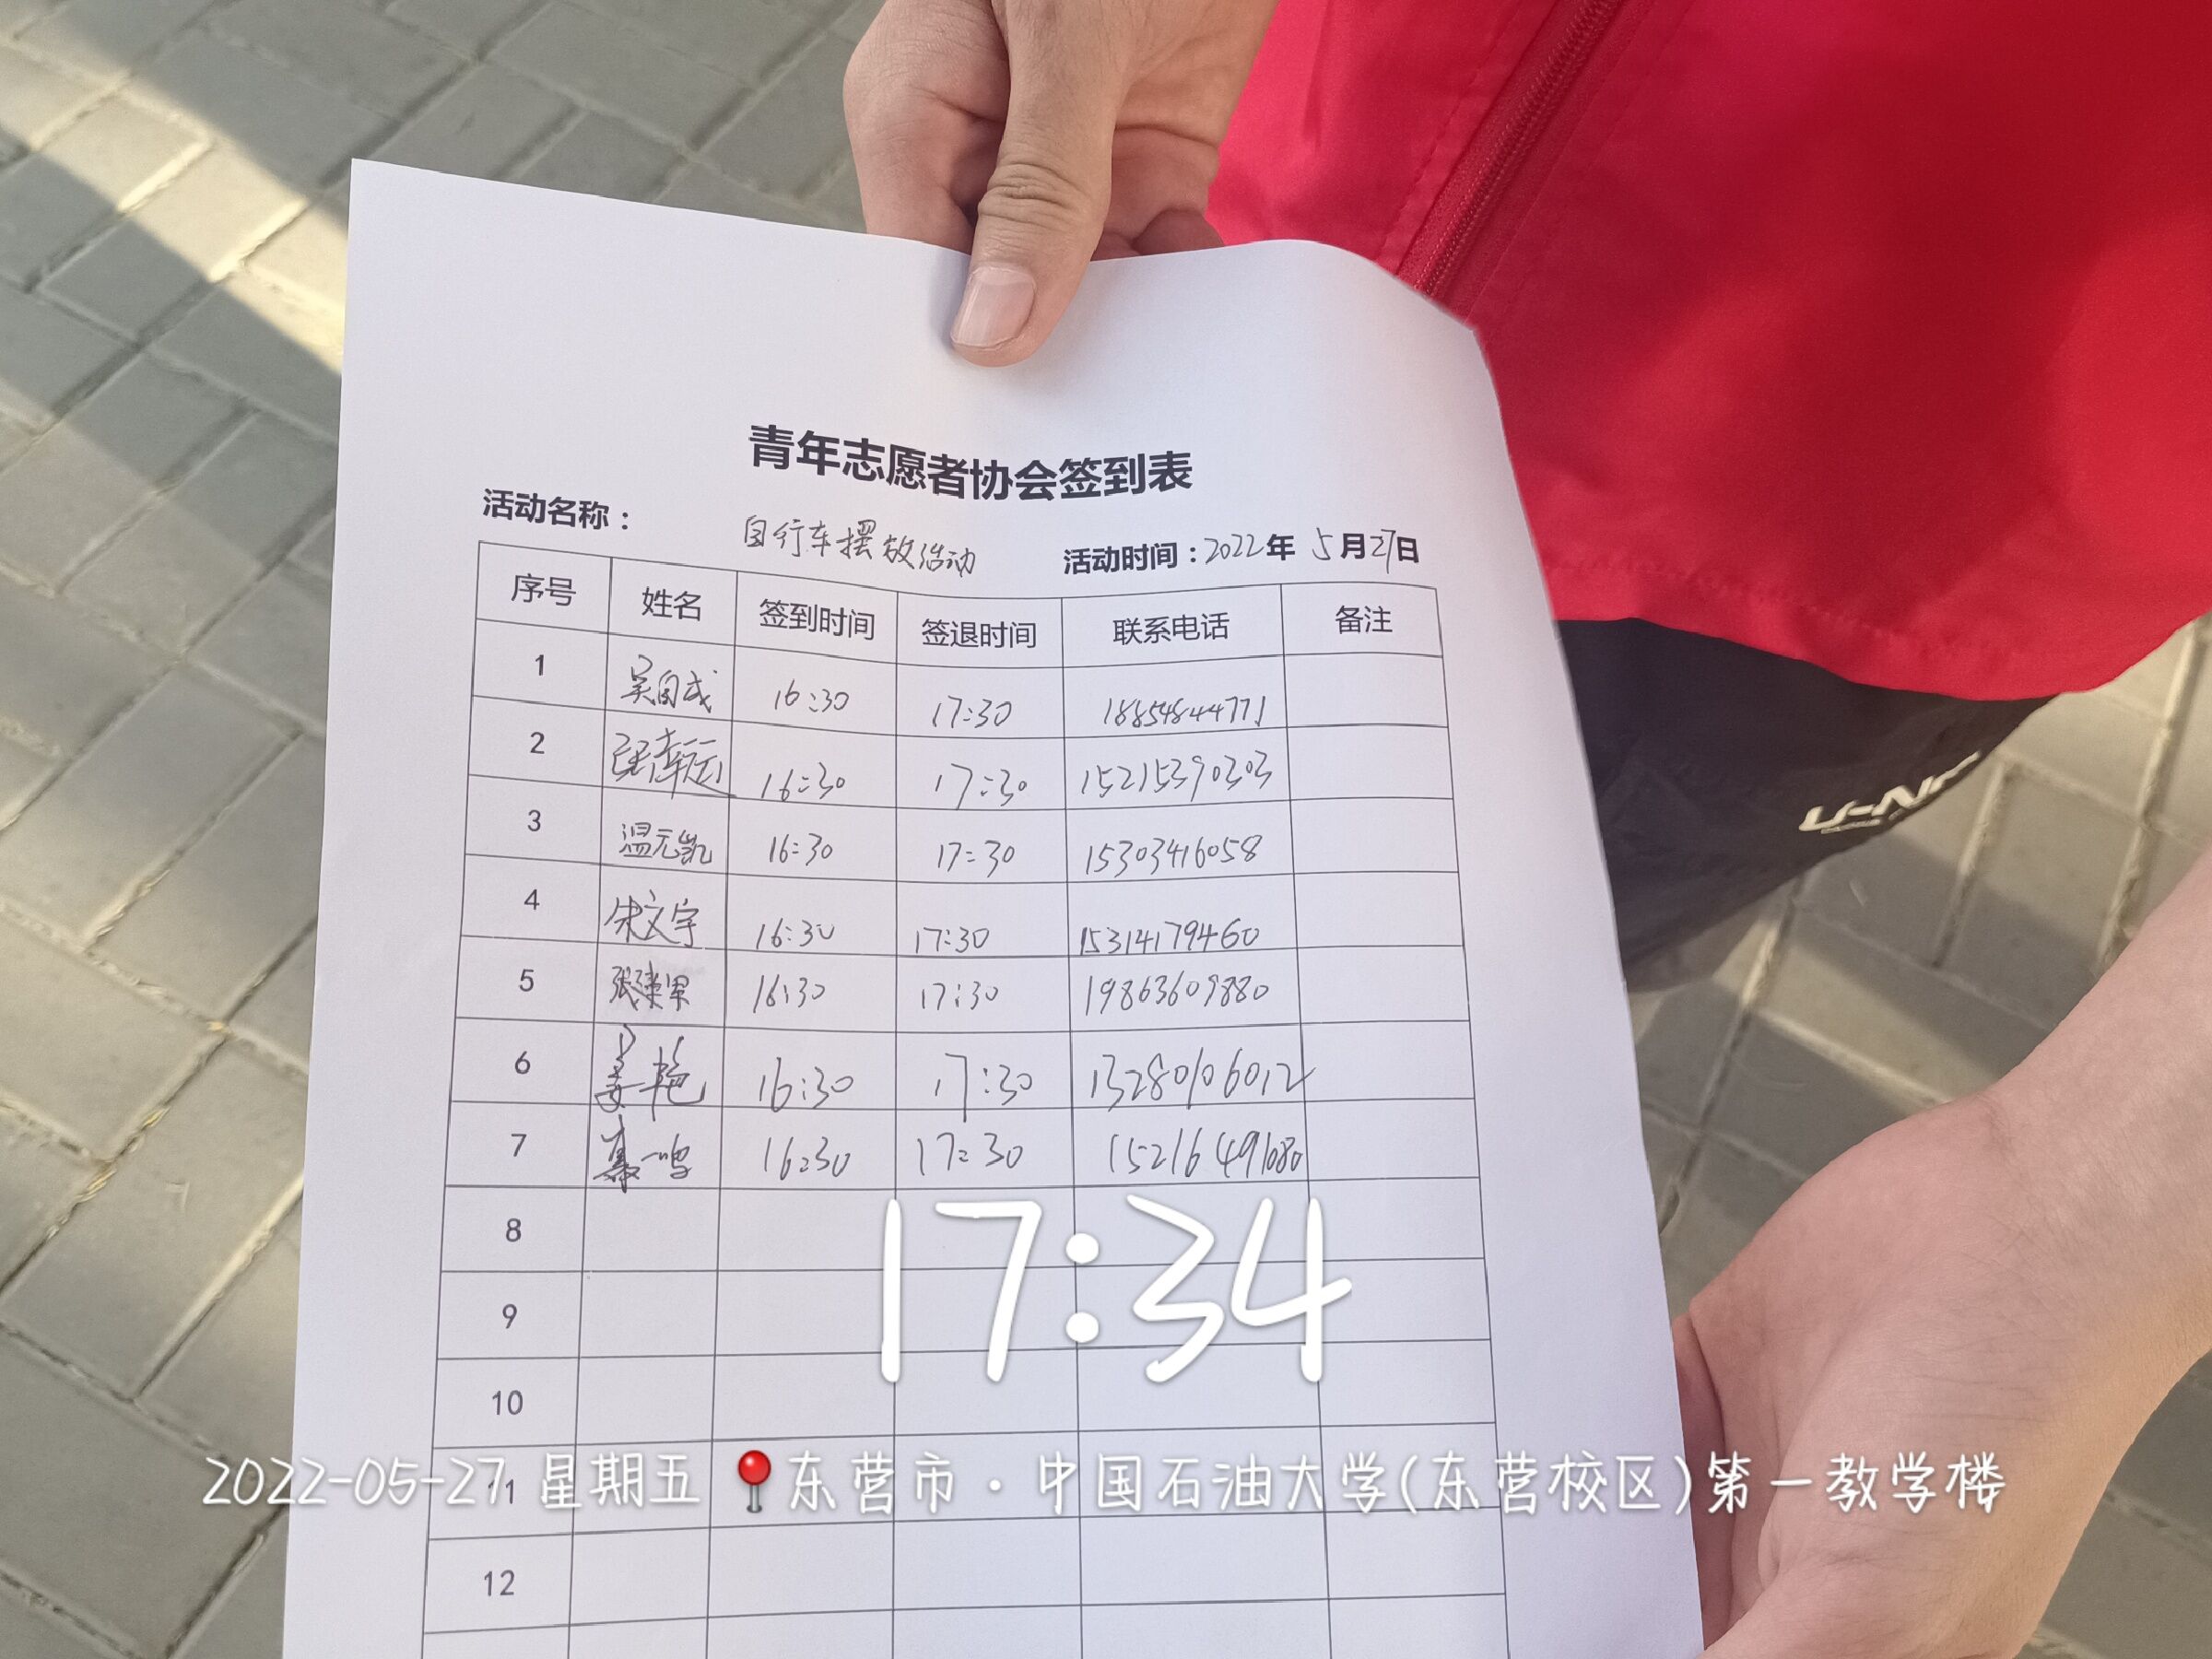 青年志愿者协会签到表
活动名称： 自行车摆放活动 活动时间：2022年 5月27日
序号 姓名 签到时间 签退时间 联系电话 备注
1 吴自成 16:30 17:30 18854844771
2 张幸运 16:30 17:30 15215390303
3 温元凯 16:30 17:30 15303416058
4 宋文宇 16:30 17:30 15314179460
5 16:30 17:30 19863609880
6 姜艳 16:30 17:30 13280106012
7 16:30 17:30 15216491080
8
9
10
11
12
17:34
2022-05-27 星期五 东营市·中国石油大学(东营校区)第一教学楼